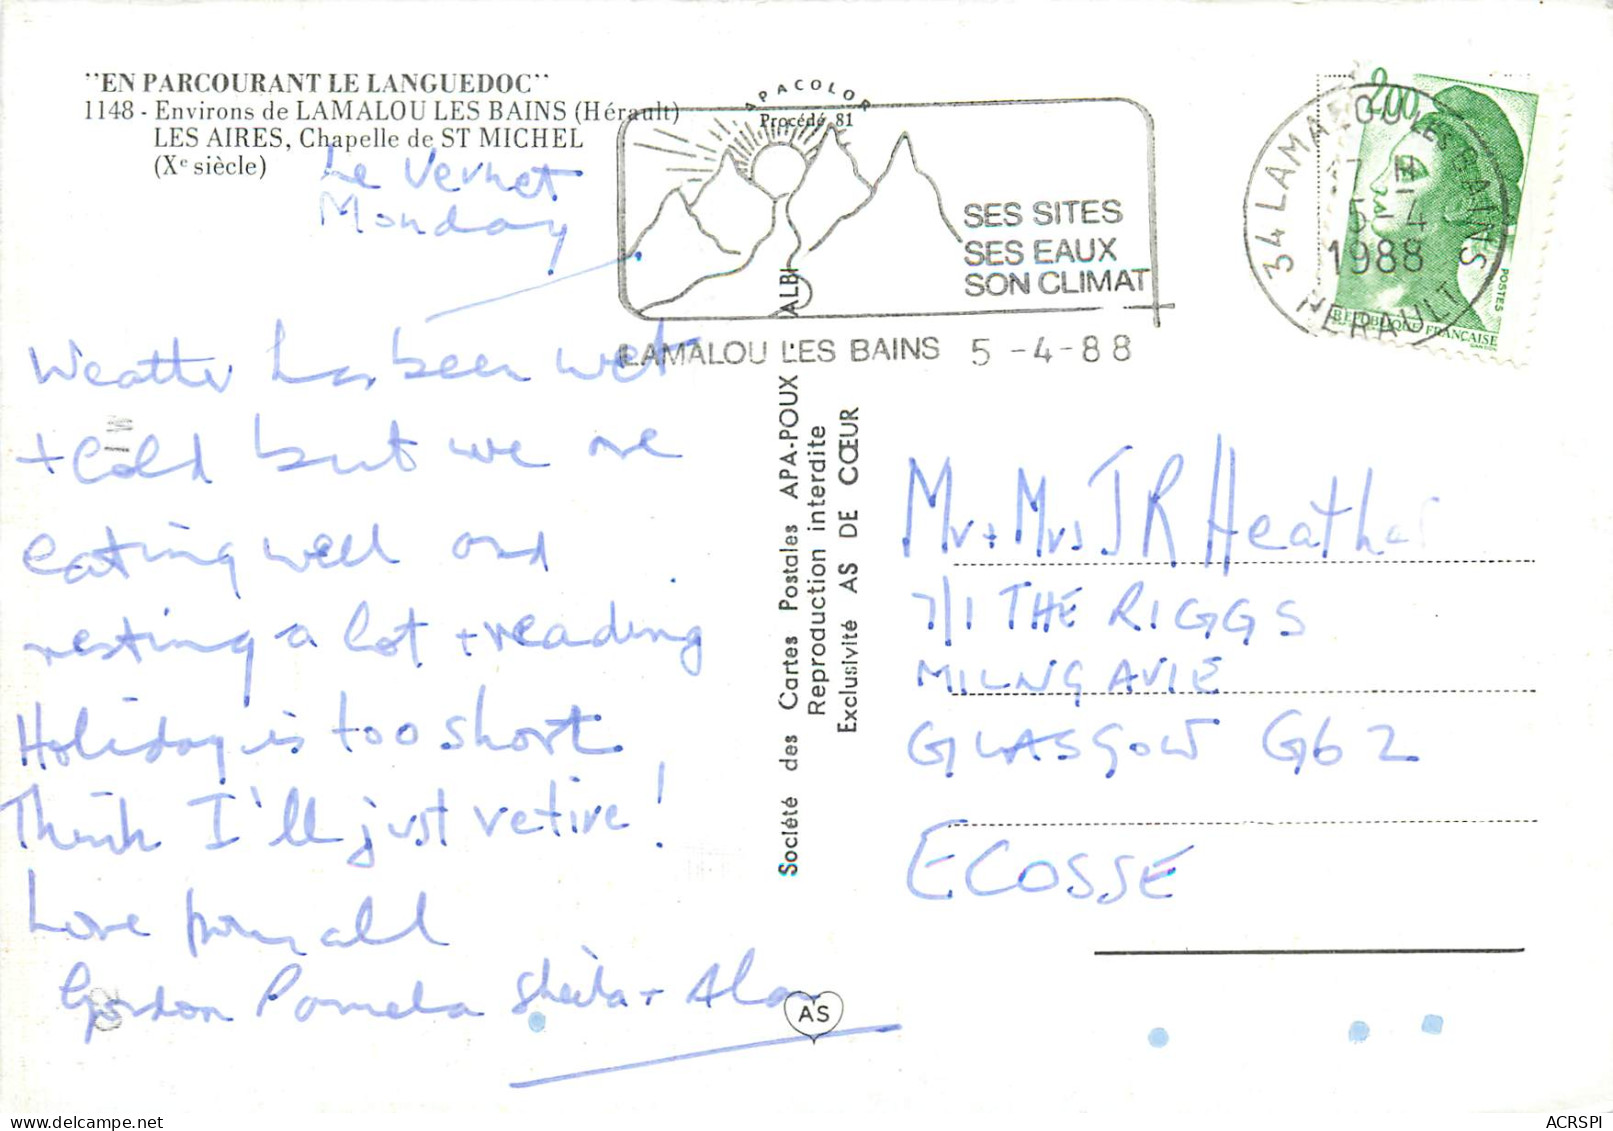 "EN PARCOURANT LE LANGUEDOC"
1148 - Environs de LAMALOU LES BAINS (Hérault)
LES AIRES, Chapelle de ST MICHEL
(Xe siècle)
Le Vernet
Monday
Weather has been wet
+ cold but we are
eating well and
resting a lot + reading
Holiday is too short
Think I'll just retire!
Love from all
Gordon Pamela Sheila + Alan
APACOLOR
Procédé 81
ALBI
SES SITES
SES EAUX
SON CLIMAT
LAMALOU LES BAINS 5-4-88
34 LAMALOU LES BAINS
5-4
1988
HERAULT
2,00
POSTES
REPUBLIQUE FRANÇAISE
Société des Cartes Postales APA-POUX
Reproduction interdite
Exclusivité AS DE CŒUR
Mr + Mrs J R
7/1 THE RIGGS
MILNGAVIE
GLASGOW G62
ECOSSE
AS
ACRSPI